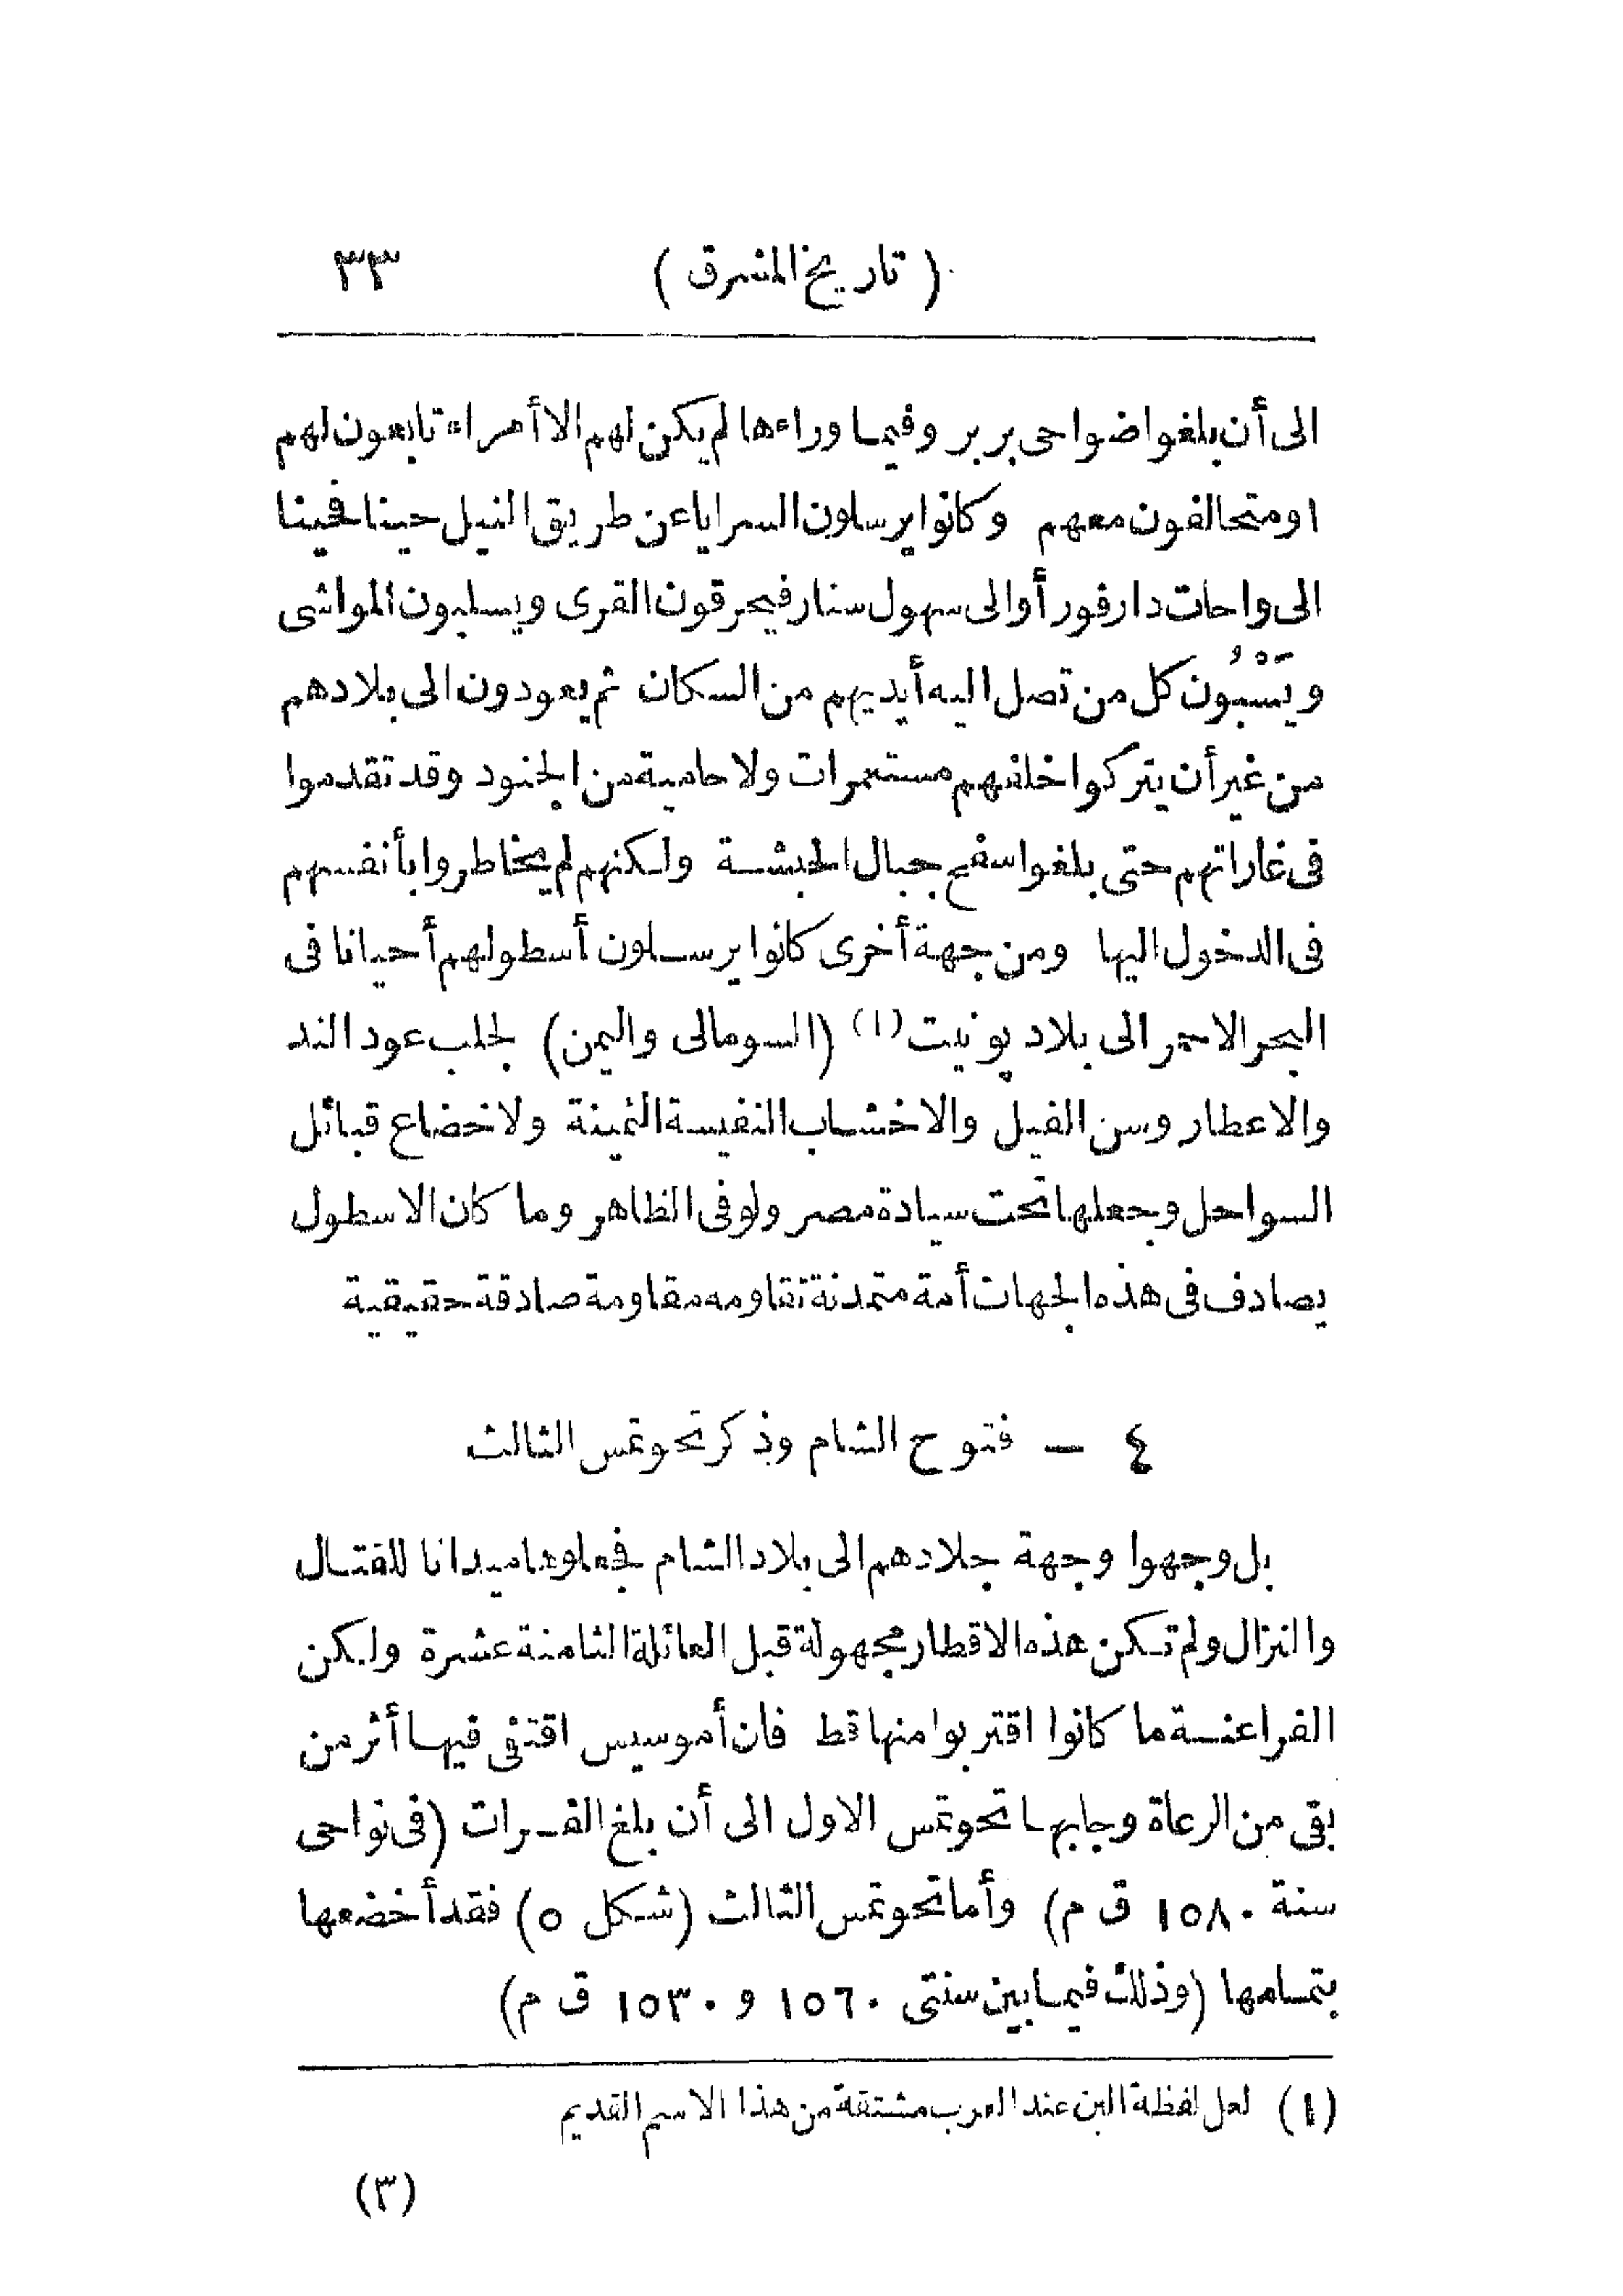 ( تاريخ المشرق ) ٣٣
الى أن بلغوا ضواحى بربر وفيما وراءها لم يكن لهم الا أمراء تابعون لهم
او متحالفون معهم وكانوا يرسلون السرايا عن طريق النيل حينا فحينا
الى واحات دارفور أوالى سهول سنار فيحرقون القرى ويسلبون المواشى
ويَسْبُون كل من تصل اليه أيديهم من السكان ثم يعودون الى بلادهم
من غير أن يتركوا خلفهم مستعمرات ولا حامية من الجنود وقد تقدموا
فى غاراتهم حتى بلغوا سفح جبال الحبشة ولكنهم لم يخاطروا بأنفسهم
فى الدخول اليها ومن جهة أخرى كانوا يرسلون أسطولهم أحيانا فى
البحر الاحمر الى بلاد پونيت (١) (السومالى واليمن) لجلب عود الند
والاعطار وسن الفيل والاخشاب النفيسة الثمينة ولاخضاع قبائل
السواحل وجعلها تحت سيادة مصر ولو فى الظاهر وما كان الاسطول
يصادف فى هذه الجهات أمة متمدنة تقاومه مقاومة صادقة حقيقية
٤ — فتوح الشام وذكر تحوتمس الثالث
بل وجهوا وجهة جلادهم الى بلاد الشام فجعلوها ميدانا للقتال
والنزال ولم تكن هذه الاقطار مجهولة قبل العائلة الثامنة عشرة ولكن
الفراعنة ما كانوا اقتربوا منها قط فان أموسيس اقتفى فيها أثر من
بقى من الرعاة وجابها تحوتمس الاول الى أن بلغ الفرات (فى نواحى
سنة ١٥٨٠ ق م) وأما تحوتمس الثالث (شكل ٥) فقد أخضعها
بتمامها (وذلك فيما بين سنتى ١٥٦٠ و ١٥٣٠ ق م)
(١) لعل لفظة البن عند العرب مشتقة من هذا الاسم القديم
(٣)